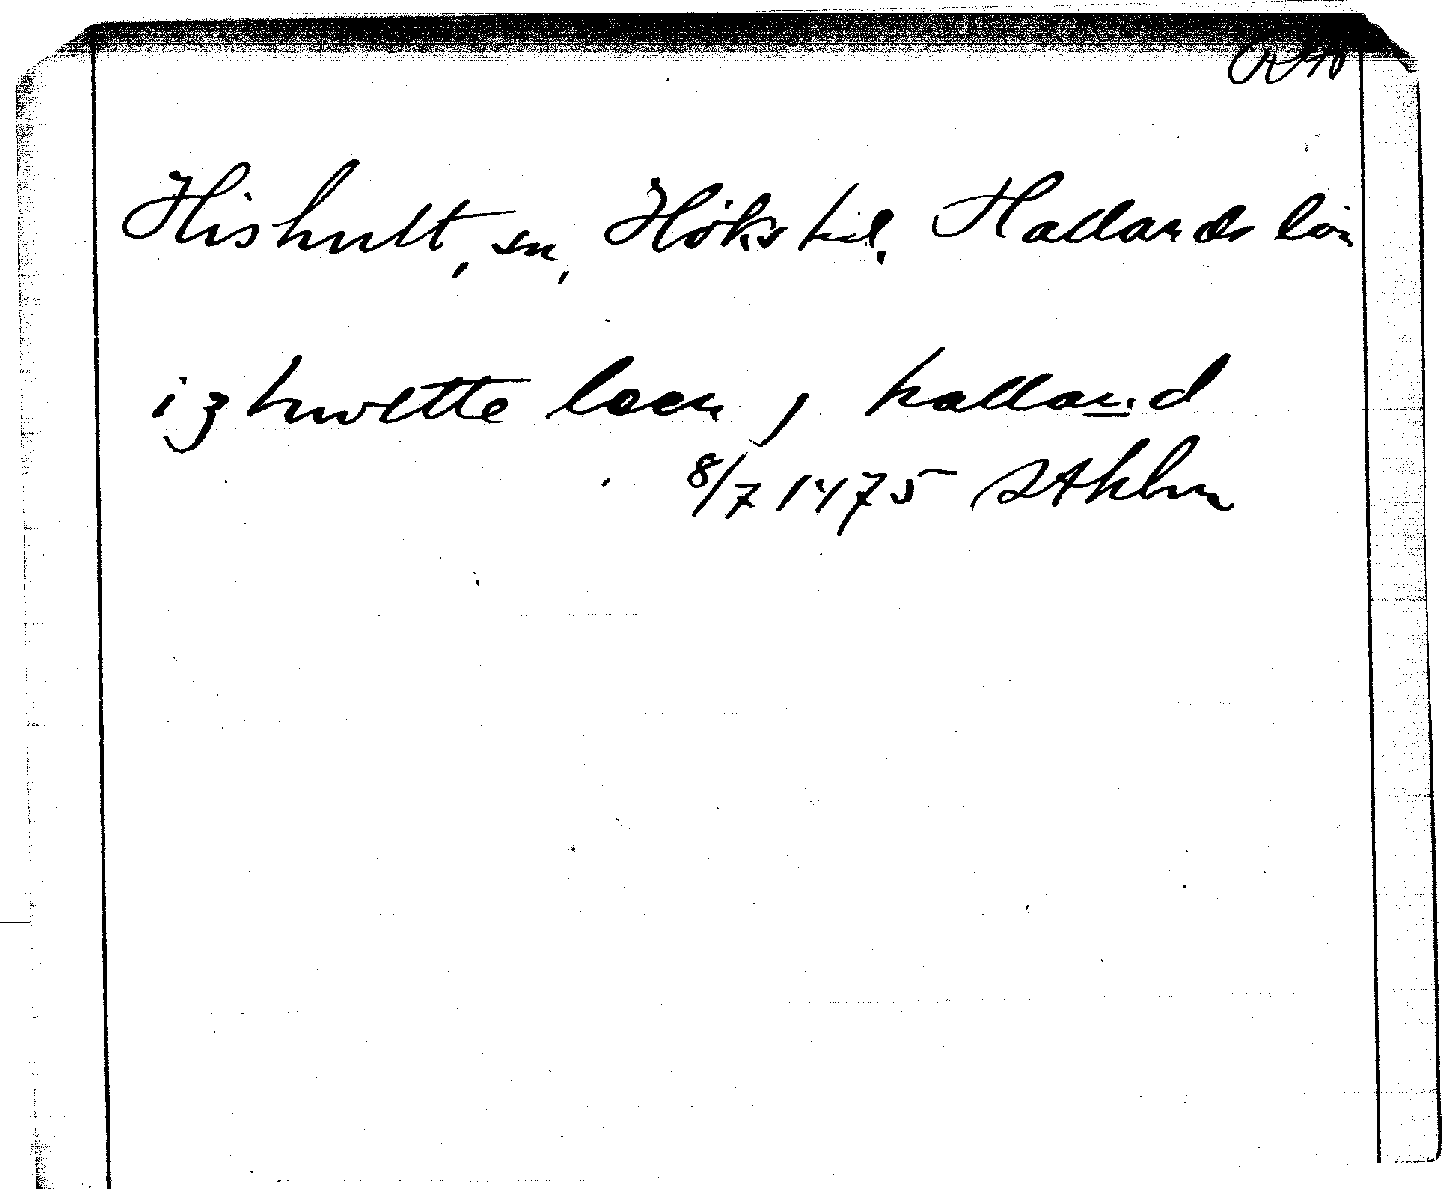 RAp
Hishult, sn, Höks hd, Hallands län
izhwltte leen j halland
8/7 1475 Sthlm